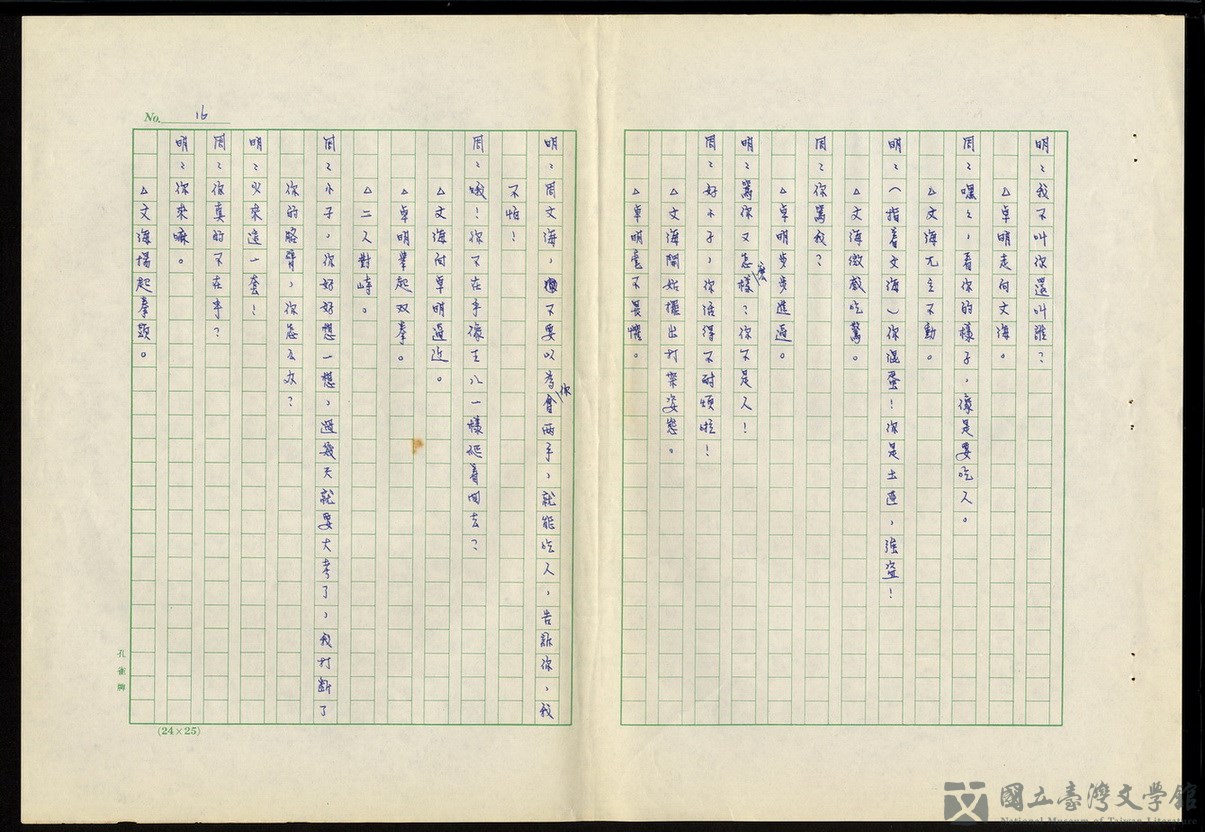 明：我不叫你還叫誰？
△卓明走向文海。
周：嘿嘿，看你的樣子，像是要吃人。
△文海兀立不動。
明：（指着文海）你混蛋！你是土匪，強盜！
△文海微感吃驚。
周：你罵我？
△卓明步步進逼。
明：罵你又怎麼樣？你不是人！
周：好小子，你活得不耐煩啦！
△文海開始擺出打架姿態。
△卓明毫不畏懼。
No. 16
明：周文海，不要以為你會兩手，就能吃人，告訴你，我
不怕！
周：哦！你不在乎像王八一樣爬着回去？
△文海向卓明逼近。
△卓明舉起双拳。
△二人對峙。
周：小子，你好好想一想，過幾天就要大考了，我打斷了
你的胳臂，你怎么办？
明：少來這一套！
周：你真的不在乎？
明：你來嘛。
△文海揚起拳頭。
孔雀牌
(24×25)
國立臺灣文學館
National Museum of Taiwan Literature